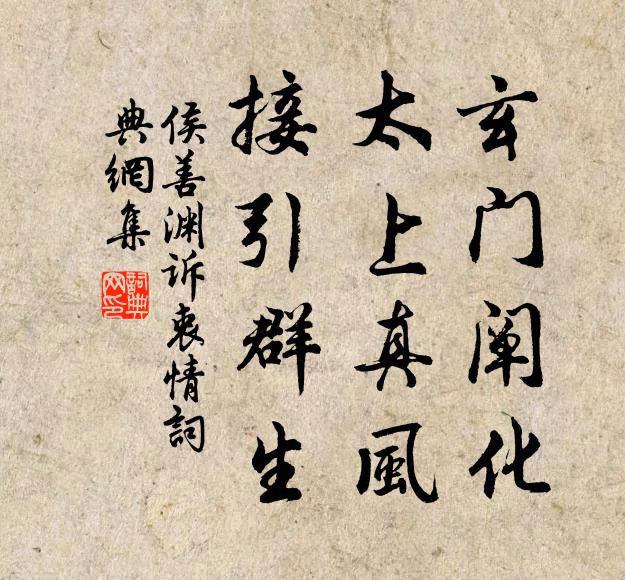 玄门阐化
太上真風
接引群生
侯善渊诉衷情詞
典網集
詞典
网印